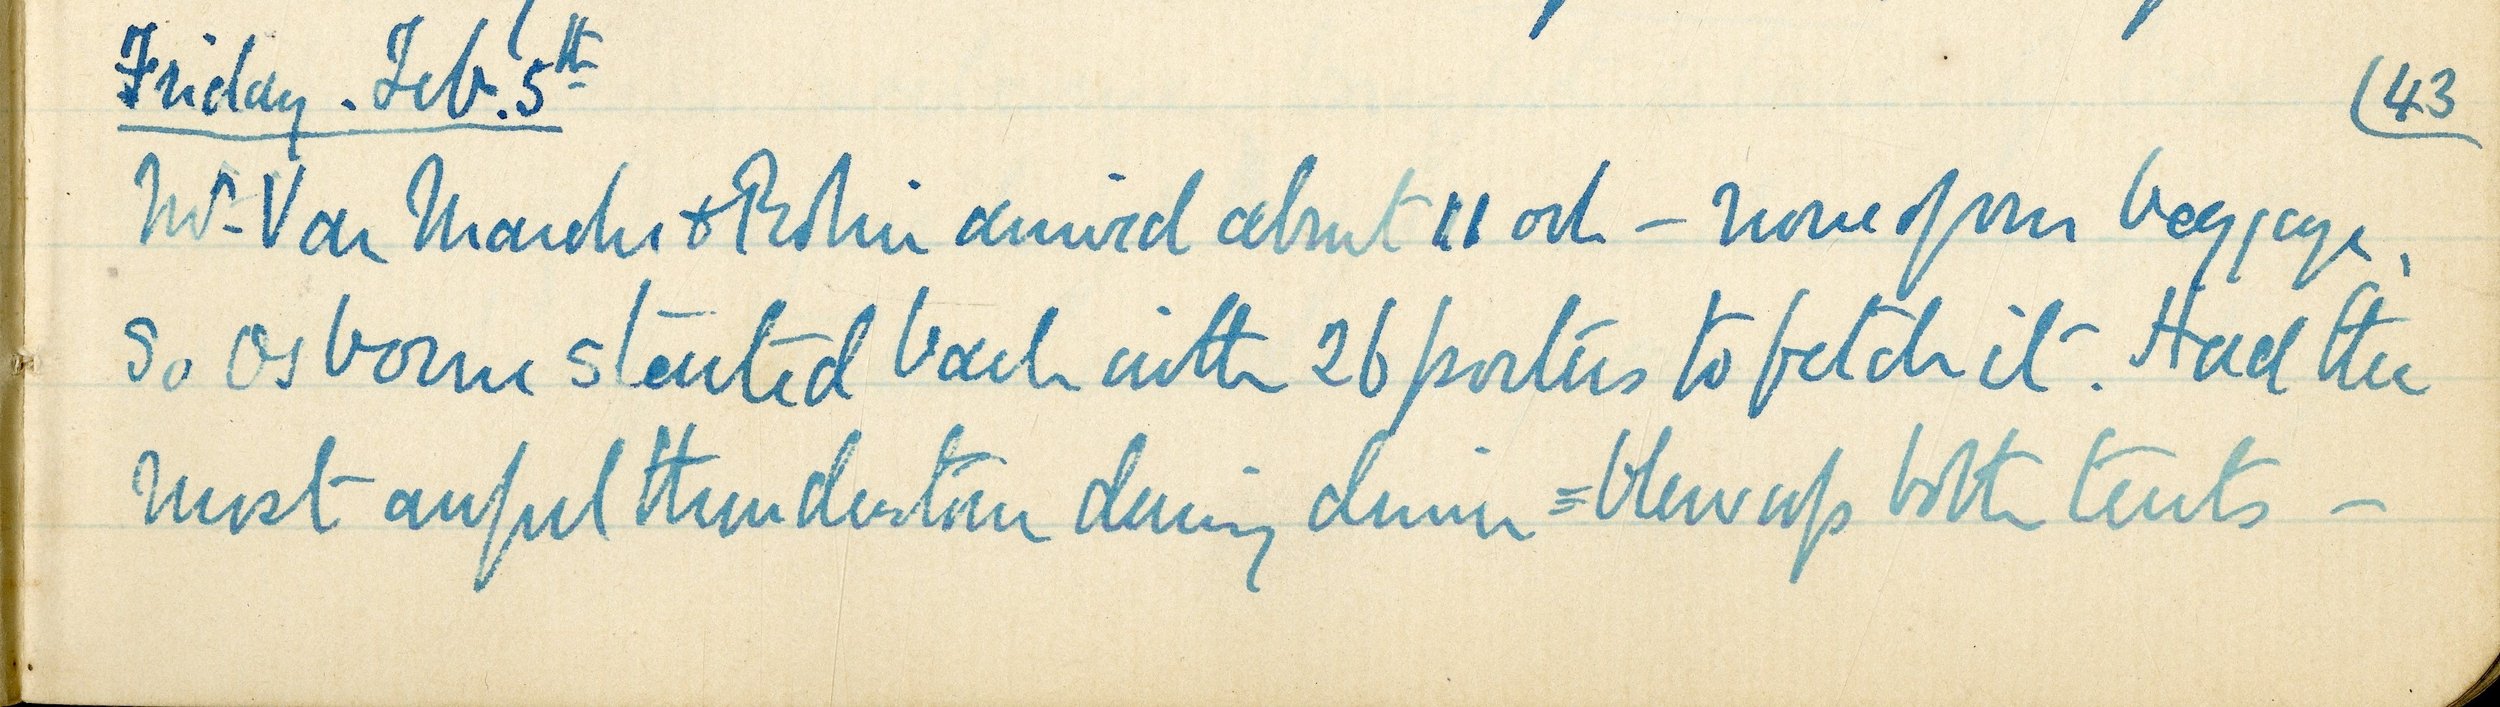 Friday. Feb. 5th
(43
Mr. Van & Robin arrived about 11 ock – none of our baggage,
So Osborne started back with 26 porters to fetch it. Had the
most awful thunderstorm during dinner = blew up both tents –